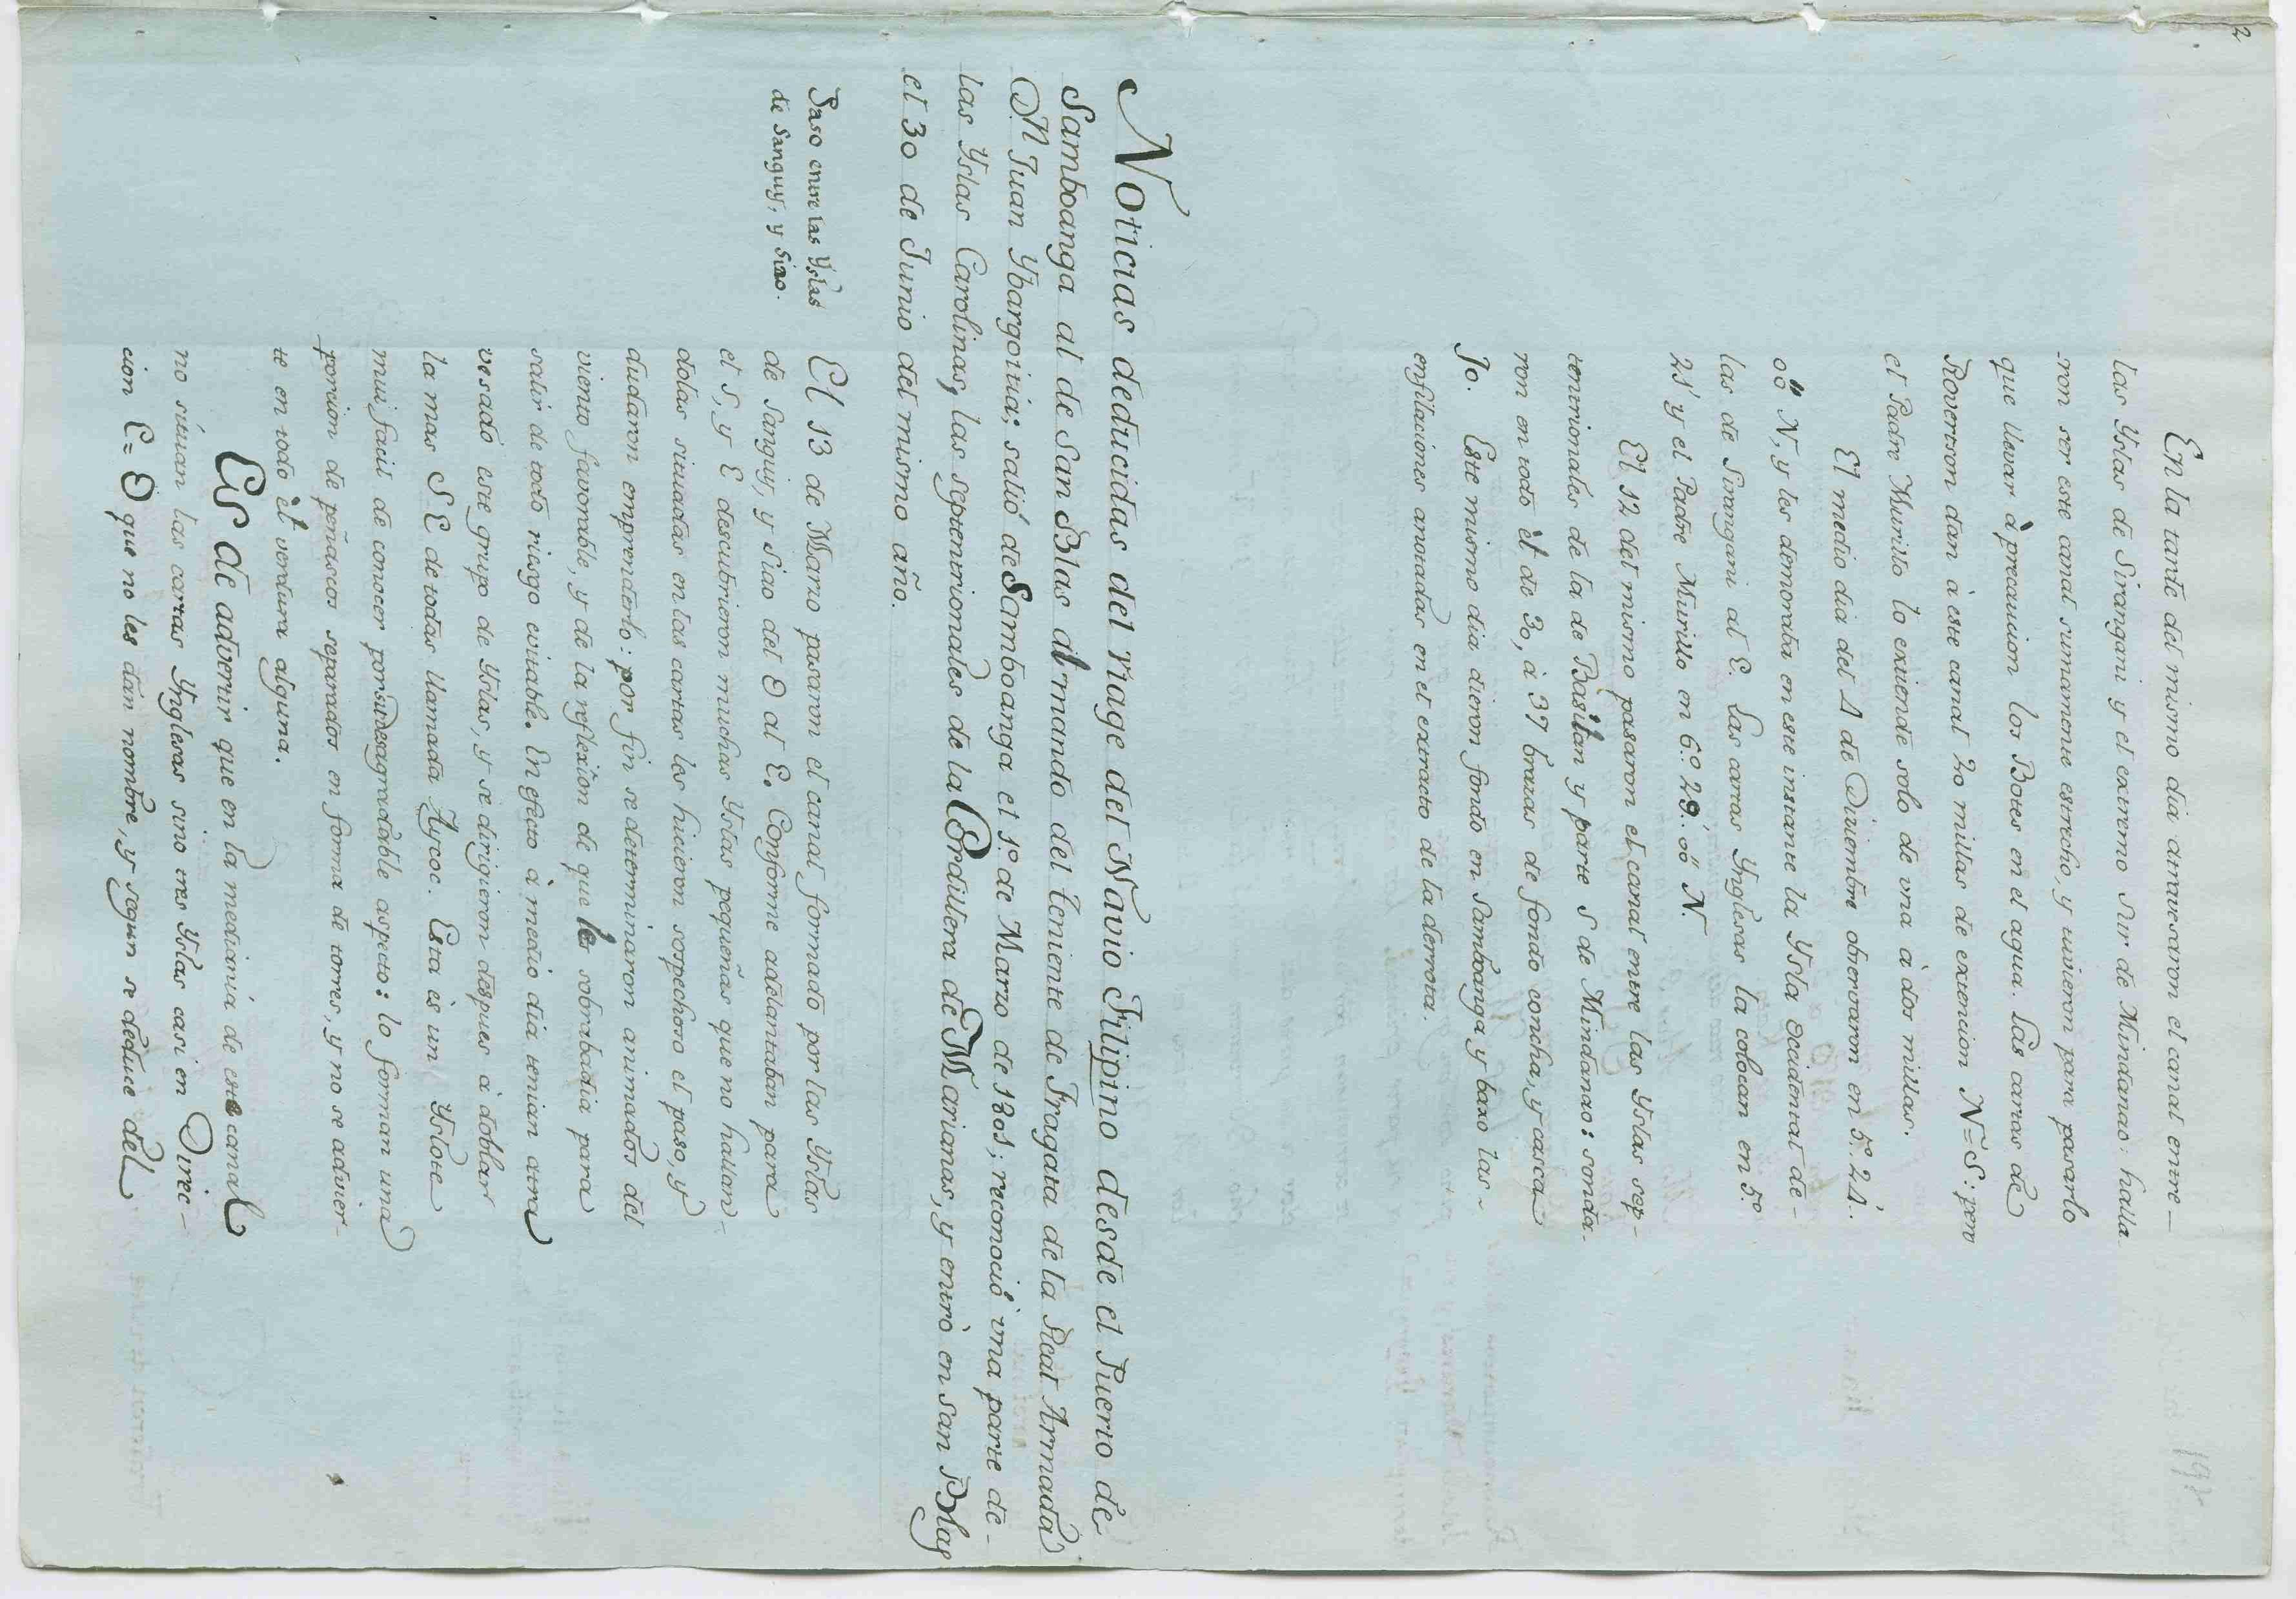 2
197
En la tarde del mismo dia atravesaron el canal entre—
las Yslas de Sirangani y el extremo sur de Mindanao: halla-
-ron ser este canal sumamente estrecho, y tuvieron para pasarlo
que llevar à precaucion los Botes en el agua. Las cartas de
Rovertson dan à este canal 20 millas de extencion N=S: pero
el Padre Murillo lo extiende solo de una à dos millas.
El medio dia del 4 de Diciembre observaron en 5.° 24.'
00" N, y les demoraba en este instante la Ysla occidental de-
las de Sirangani al E. Las cartas Ynglesas la colocan en 5.°
21' y el Padre Murillo en 6.° 29.' 00" N.
El 12 del mismo pasaron el canal entre las Yslas sep-
tentrionales de la de Basilan y parte S de Mindanao: sonda-
ron en todo èl de 30, à 37 brazas de fondo concha, y casca-
jo. Este mismo dia dieron fondo en Samboanga y baxo las-
enfilaciones anotadas en el extracto de la derrota.
Noticias deducidas del viage del Navio Filipino desde el Puerto de
Samboanga al de San Blas al mando del Teniente de Fragata de la Real Armada
Dn. Juan Ybargoitia; salió de Samboanga el 1.° de Marzo de 1801; reconoció una parte de-
las Yslas Carolinas, las septentrionales de la Cordillera de Marianas, y entrò en San Blas
el 30 de Junio del mismo año.
Paso entre las Yslas
de Sanguy, y Siao.
El 13 de Marzo pasaron el canal formado por las Yslas
de Sanguy, y Siao del O al E. Conforme adelantaban para
el S, y E descubrieron muchas Yslas pequeñas que no hallan-
dolas situadas en las cartas les hicieron sospechoso el paso, y
dudaron emprenderlo: por fin se determinaron animados del
viento favorable, y de la reflexîon de que les sobrabadia para
salir de todo riesgo evitable. En efecto à medio dia tenian atra
vesado este grupo de Yslas, y se dirigieron despues à doblar
la mas S E de todas llamada Ayroc. Esta ès un Yslote
mui facil de conocer por su desagradable aspecto: lo forman una
porcion de peñascos separados en forma de torres, y no se advier-
te en todo èl verdura alguna.
Es de advertir que en la mediania de este canal
no sitúan las cartas Ynglesas sino tres Yslas casi en Direc-
cion E=O que no les dàn nombre, y segun se deduce del